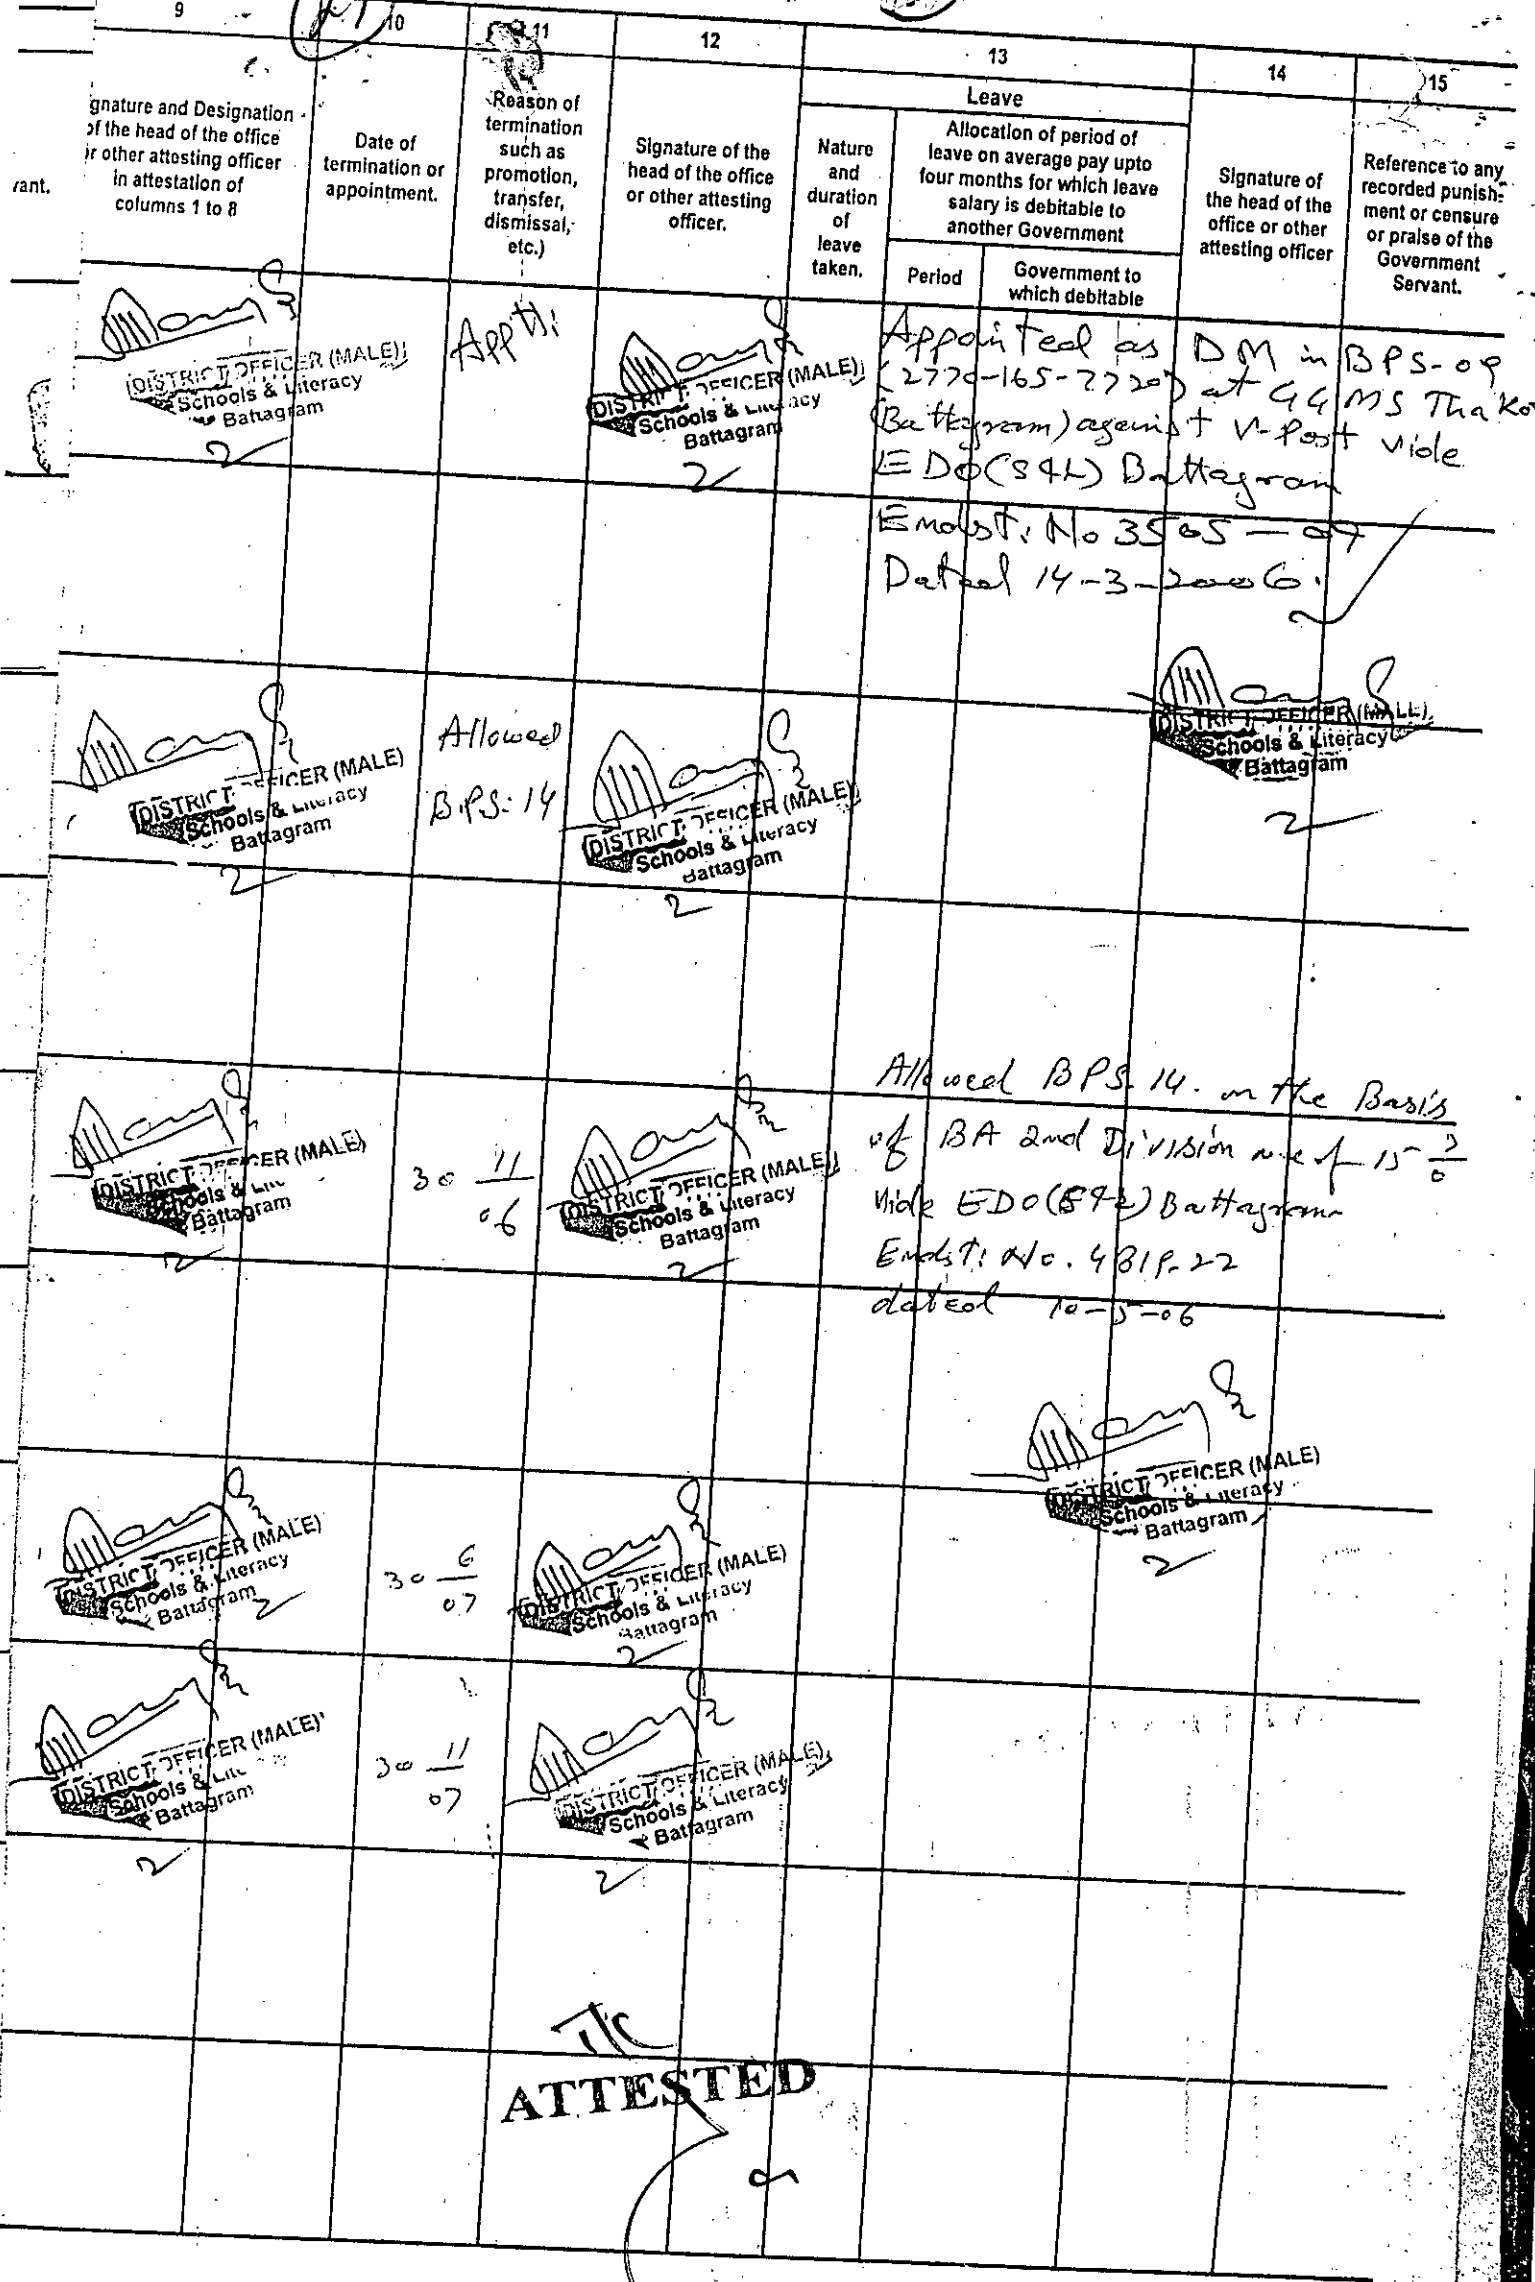 9 10 11 12 13 14 15
gnature and Designation
of the head of the office
or other attesting officer
in attestation of
columns 1 to 8
rant.
Date of
termination or
appointment.
Reason of
termination
such as
promotion,
transfer,
dismissal,
etc.)
Signature of the
head of the office
or other attesting
officer.
Leave
Nature
and
duration
of
leave
taken.
Allocation of period of
leave on average pay upto
four months for which leave
salary is debitable to
another Government
Period
Government to
which debitable
Signature of
the head of the
office or other
attesting officer
Reference to any
recorded punish-
ment or censure
or praise of the
Government
Servant.
DISTRICT OFFICER (MALE)
Schools & Literacy
Battagram
Apptt:
DISTRICT OFFICER (MALE)
Schools & Literacy
Battagram
Appointed as DM in BPS-09
(2770-165-7720) at GGMS Thakot
(Battagram) against V-Post vide
EDO(S&L) Battagram
Endst: No 3505-09
Dated 14-3-2006.
DISTRICT OFFICER (MALE)
Schools & Literacy
Battagram
DISTRICT OFFICER (MALE)
Schools & Literacy
Battagram
Allowed
B.P.S. 14
DISTRICT OFFICER (MALE)
Schools & Literacy
Battagram
DISTRICT OFFICER (MALE)
Schools & Literacy
Battagram
30 11
06
DISTRICT OFFICER (MALE)
Schools & Literacy
Battagram
Allowed BPS. 14. on the Basis
of BA 2nd Division
vide EDO(S&L) Battagram
Endst: No. 4819-22
dated 10-5-06
DISTRICT OFFICER (MALE)
Schools & Literacy
Battagram
DISTRICT OFFICER (MALE)
Schools & Literacy
Battagram
30 6
07
DISTRICT OFFICER (MALE)
Schools & Literacy
Battagram
DISTRICT OFFICER (MALE)
Schools & Lit
Battagram
30 11
07
DISTRICT OFFICER (MALE)
Schools & Literacy
Battagram
ATTESTED